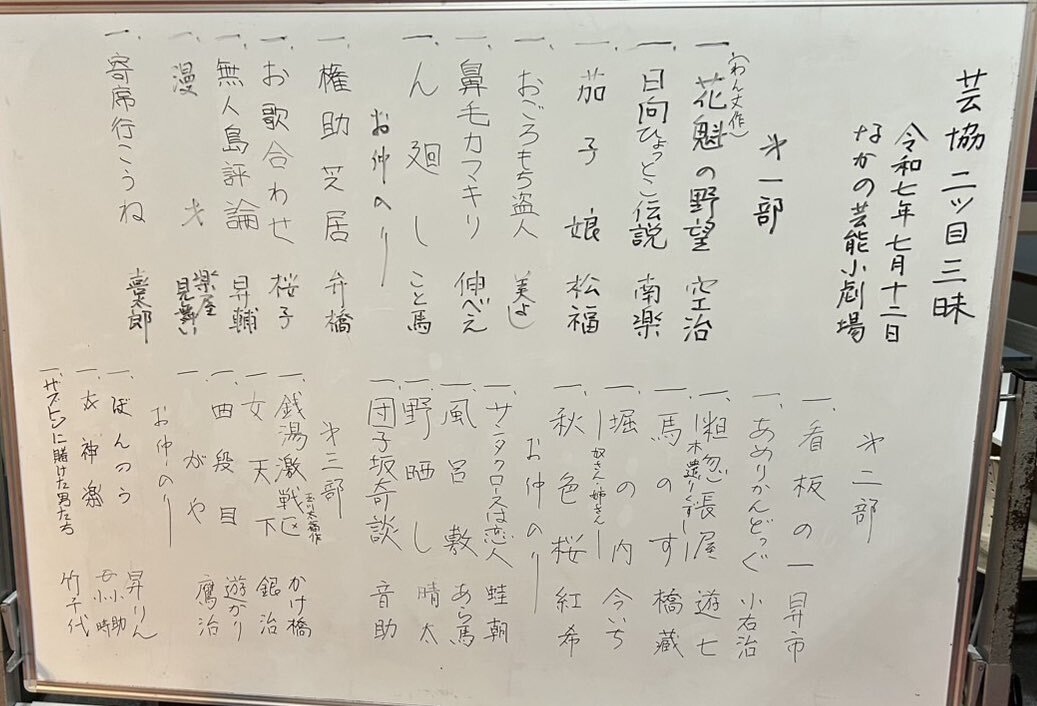 芸協 二ッ目 三昧
令和七年七月十二日
なかの芸能小劇場
才一部
一、花魁の野望 空治
(わん丈作)
一、日向ひょっとこ伝説 南楽
一、茄子娘 松福
一、おごろもち盗人 美よし
一、鼻毛カマキリ 伸べえ
一、ん廻し こと馬
お仲入り
一、権助芝居 弁橋
一、お歌合わせ 桜子
一、無人島評論 昇輔
一、漫才 楽屋見舞い
一、寄席行こうね 喜太郎
才二部
一、看板の一 昇市
一、ありがかんどっぐ 小右治
一、粗忽長屋 遊七
一、馬のす 橋蔵
一、堀の内 今いち
一、秋色桜 紅希
お仲入り
一、サンタクロースは恋人 蛙朝
一、風呂敷 あら馬
一、野晒し 晴太
一、団子坂奇談 音助
才三部
一、銭湯激戦区 かけ橋
一、女天下 銀治
一、四段目 遊かり
一、がや 鷹治
お仲入り
一、ぼんのう 昇りん
一、神楽
一、ザブトンに賭けた男たち 竹千代